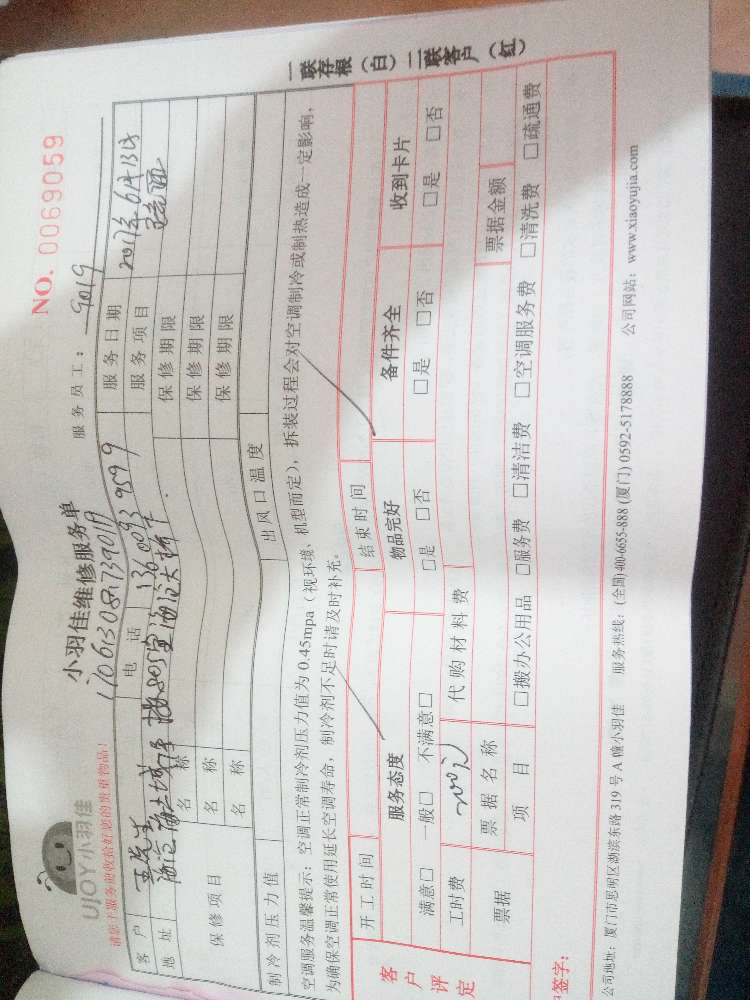 UJOY小羽佳
小羽佳维修服务单
NO. 0069059
请您于服务前收验好您的贵重物品!
服务员工: 9019
客户 王先生 电话 136 0093 9599 服务日期 2017年6月13号
地址 服务项目
保修项目 名称 保修期限
名称 保修期限
名称 保修期限
制冷剂压力值 出风口温度
空调服务温馨提示:空调正常制冷剂压力值为 0.45mpa(视环境、机型而定),拆装过程会对空调制冷或制热造成一定影响,
为确保空调正常使用延长空调寿命,制冷剂不足时请及时补充。
一联存根(白)二联客户(红)
客户评定
开工时间 结束时间
服务态度 物品完好 备件齐全 收到卡片
满意□ 一般□ 不满意□ □是 □否 □是 □否 □是 □否
工时费 200元 代购材料费
票据 票据名称 票据金额
项目 □搬办公用品 □服务费 □清洁费 □空调服务费 □清洗费 □疏通费
签字:
公司地址:厦门市思明区湖滨东路 319 号 A 幢小羽佳 服务热线:(全国)400-6655-888 (厦门) 0592-5178888 公司网站:www.xiaoyujia.com